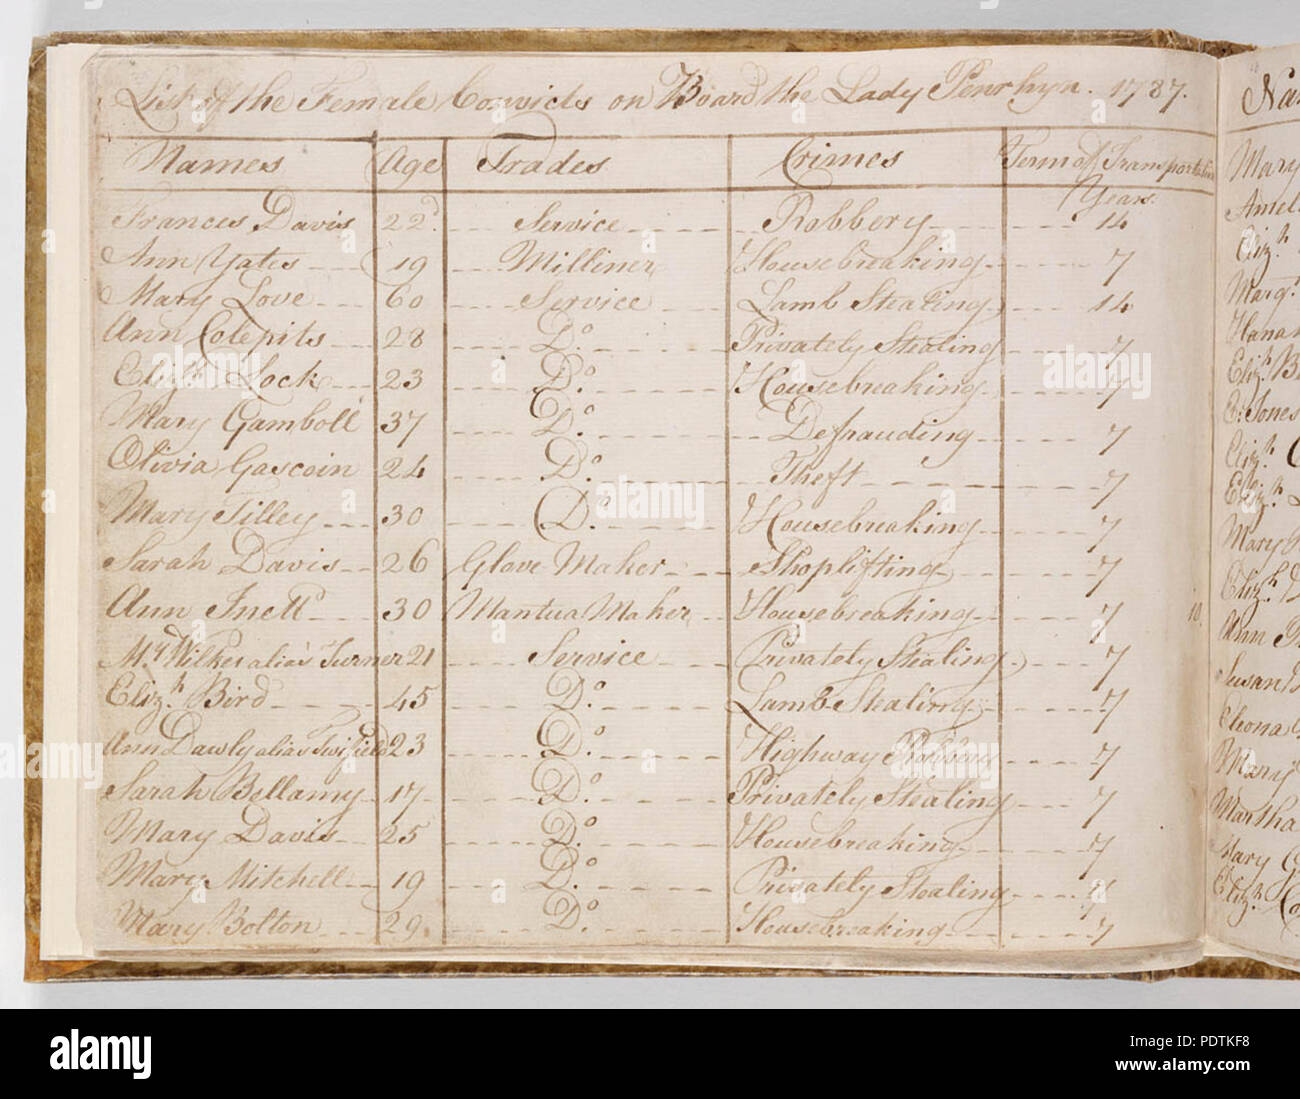 List of the Female Convicts on Board the Lady Penrhyn. 1787.
Names Age Trades Crimes Term of Transportation
Years
Frances Davis 22 Service Robbery 14
Ann Yates 19 Milliner Housebreaking 7
Mary Love 60 Service Lamb Stealing 14
Ann Colepits 28 Do. Privately Stealing 7
Elizh. Lock 23 Do. Housebreaking 7
Mary Gamboll 37 Do. Defrauding 7
Olivia Gascoin 24 Do. Theft 7
Mary Tilley 30 Do. Housebreaking 7
Sarah Davis 26 Glove Maker Shoplifting 7
Ann Inett 30 Mantua Maker Housebreaking 7
My. Wilkes alias Turner 21 Service Privately Stealing 7
Elizh. Bird 45 Do. Lamb Stealing 7
Ann Dawly alias Twifield 23 Do. Highway Robbery 7
Sarah Bellamy 17 Do. Privately Stealing 7
Mary Davis 25 Do. Housebreaking 7
Mary Mitchell 19 Do. Privately Stealing 7
Mary Bolton 29 Do. Housebreaking 7
Mary
Elizh.
Margt.
Hanah
Elizh.
E. Jones
Elizh.
Elizh.
Mary
Elizh.
Ann
Susan
Mary
Martha
Mary
Elizh.
alamy
alamy
Image ID: PDTKF8
www.alamy.com